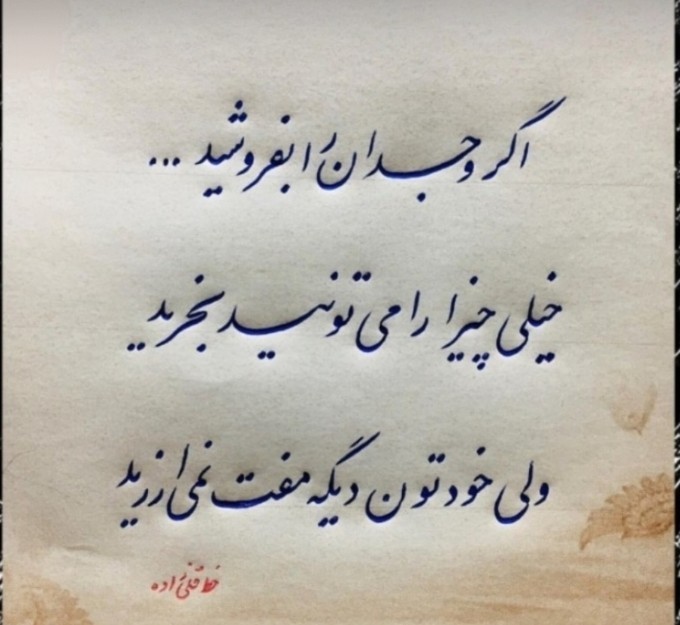 اگر وجدان را بفروشید ...
خیلی چیزا را می تونید بخرید
ولی خودتون دیگه مفت نمی ارزید
خط قلی زاده